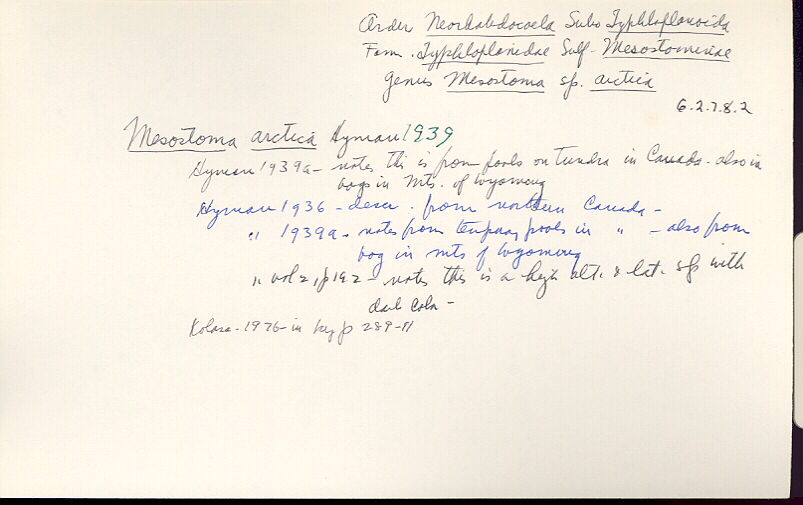 Order Neorhabdocoela Subo Typhloplanoida
Fam. Typhloplanidae Subf- Mesostominae
genus Mesostoma sp. arctica
6.2.7.8.2
Mesostoma arctica Hyman 1939
Hyman 1939a - notes this is from pools on Tundra in Canada - also in
bogs in Mts. of Wyoming
Hyman 1936 - descr. from northern Canada -
" 1939a - notes from temporary pools in " - also from
bog in mts of Wyoming
" vol 2, p 192 - notes this is a high alt. & lat. sp with
dark color -
Kolasa - 1976 - in key p 289-